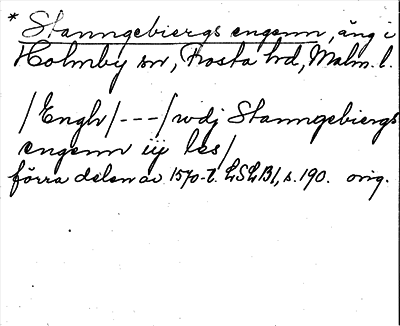 * Stanngebiergs engenn, äng i
Holmby sn, Frosta hd, Malm. l.
/Enghr/---/wdj Stanngebiergs
engenn iij les/
förra delen av 1570-t. LSLB1, s. 190. orig.